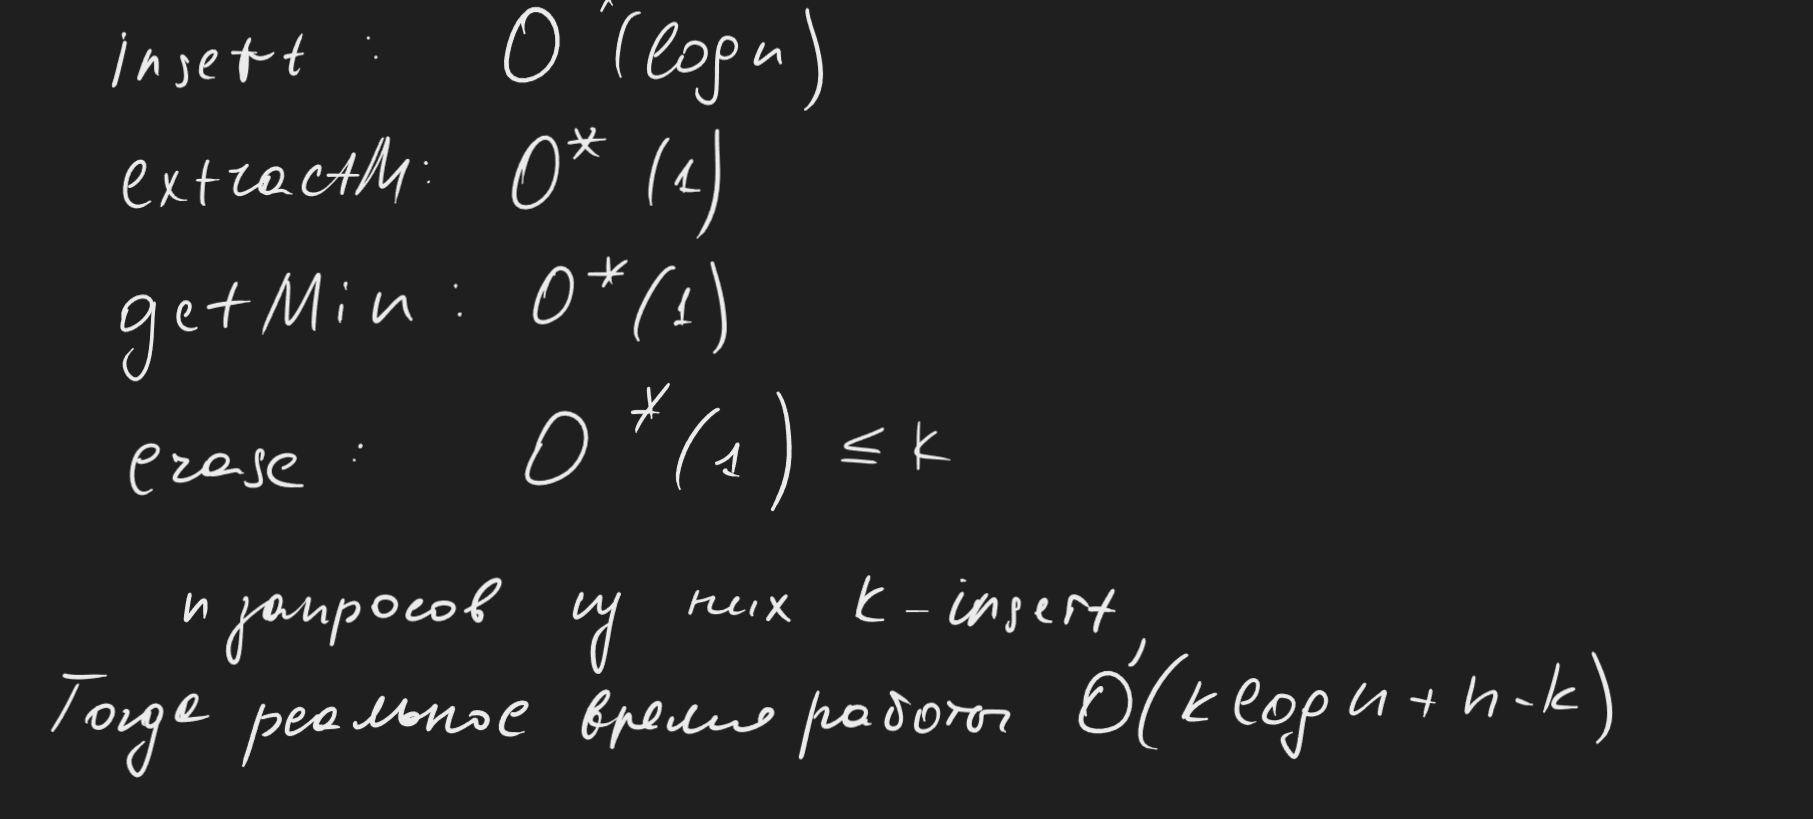 insert : O*(log n)
extractM: O*(1)
getMin : O*(1)
erase : O*(1) ≤ k
n запросов из них k - insert,
Тогда реальное время работы O(k log n + n - k)